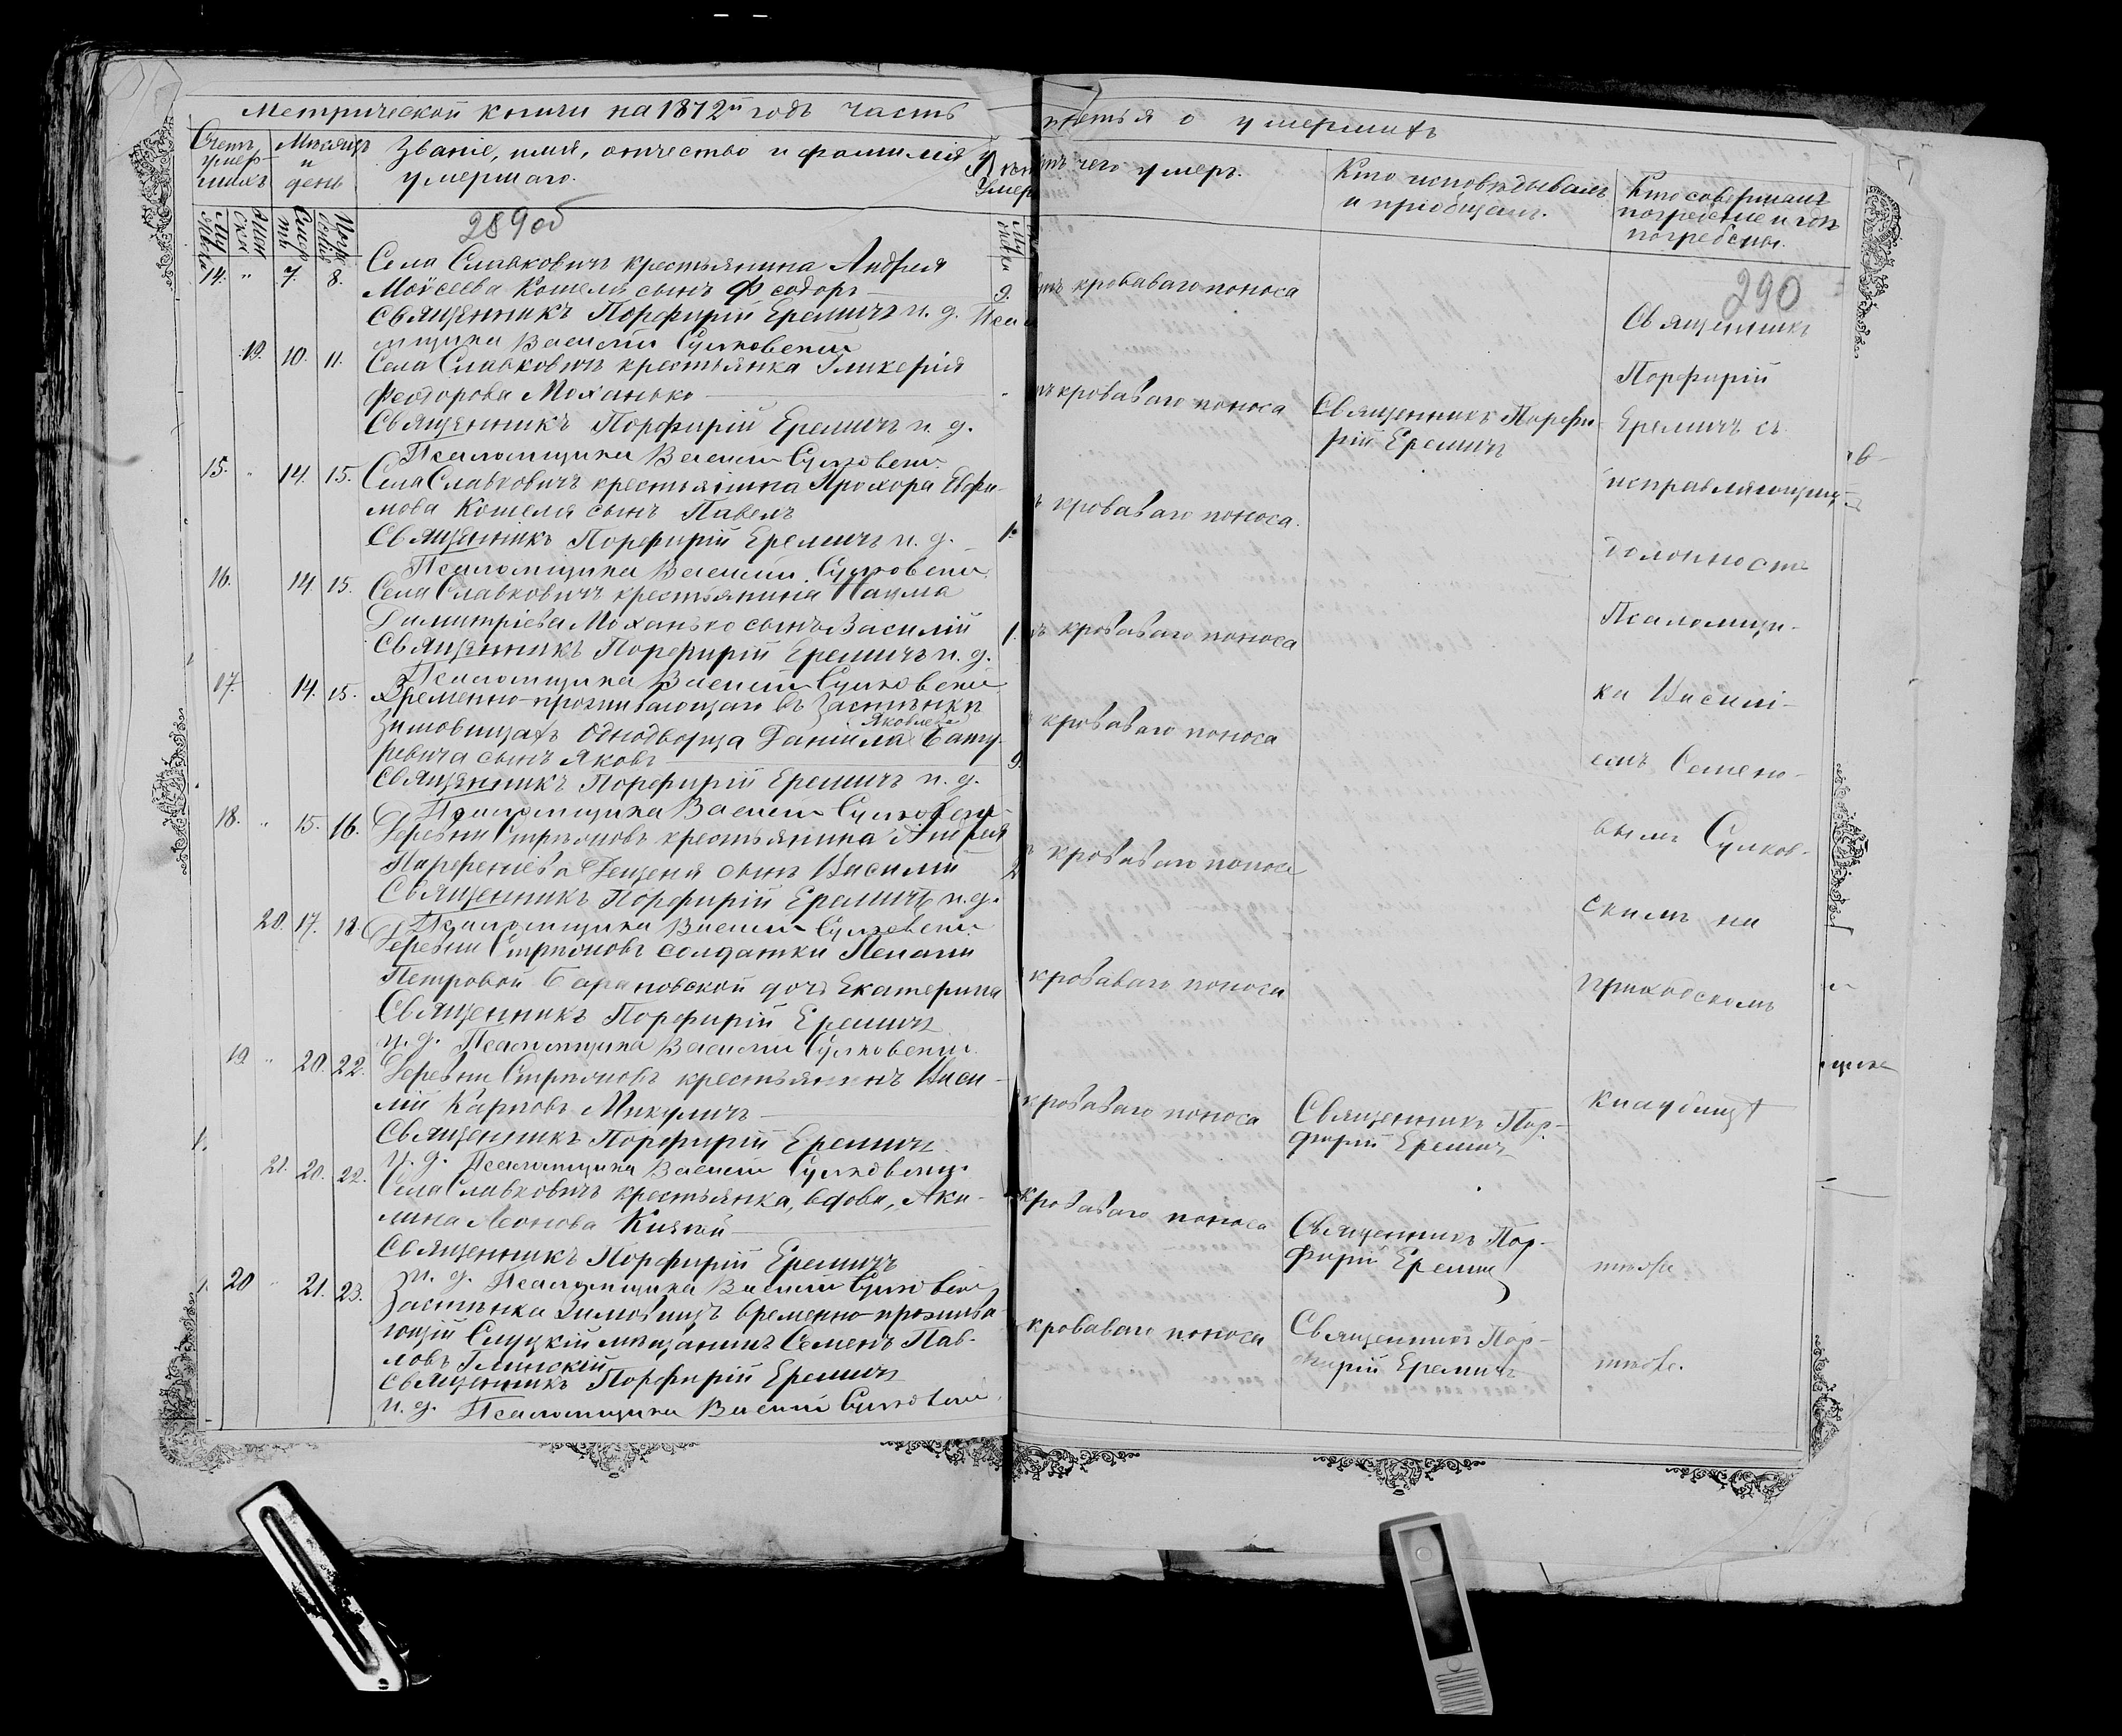 Метрической книги на 1872й годъ часть
третья о умершихъ
Счетъ умер- шихъ
Мѣсяцъ и день
Званіе, имя, отчество и фамилія
умершаго.
Лѣта
Умер
отъ чего умеръ.
Кто исповѣдывалъ
и пріобщалъ.
Кто совершалъ
погребеніе и гдѣ
погребены.
289об
290
14. " 7. 8. Села Славковичъ крестьянина Андрея
Моисеева Кошеля сынъ Ѳеодоръ 9. отъ кроваваго поноса
Священникъ Порфирій Еремичъ и. д. Псало
мщика Василій Сулковскій
19. 10. 11. Села Славковичъ крестьянка Гликерія
Феодорова Моханько кроваваго поноса Священникъ Порфи
рій Еремичъ
Священникъ Порфирій Еремичъ и. д.
Псаломщика Василій Сулковскій
15. " 14. 15. Села Славковичъ крестьянина Прохора Евфи-
мова Кошеля сынъ Павелъ кроваваго поноса.
Священникъ Порфирій Еремичъ и. д. 1.
Псаломщика Василій Сулковскій
16. 14. 15. Села Славковичъ крестьянина Наума
Димитріева Моханько сынъ Василій 1. кроваваго поноса
Священникъ Порфирій Еремичъ и. д.
Псаломщика Василій Сулковскій
17. 14. 15. Временно-проживающаго въ Застѣнкѣ
Зимовищахъ Однодворца Даніила Яковлева Бату-
ревича сынъ Яковъ 9. кроваваго поноса
Священникъ Порфирій Еремичъ и. д.
Псаломщика Василій Сулковскій
18. " 15. 16. Деревни крестьянина Андрея
Парфеніева сынъ Василій 2 кроваваго поноса
Священникъ Порфирій Еремичъ и. д.
Псаломщика Василій Сулковскій
20. 17. 18. Деревни солдатки Пелагіи
Петровой Барановской дочь Екатерина кроваваго поноса
Священникъ Порфирій Еремичъ
и. д. Псаломщика Василій Сулковскій
19 " 20. 22. Деревни крестьянинъ Васи-
лій Карповъ Микуличъ кроваваго поноса Священникъ Пор-
фирій Еремичъ
Священникъ Порфирій Еремичъ
и. д. Псаломщика Василій Сулковскій
21. 20. 22. Села Славковичъ крестьянка, вдова, Аки-
лина Леонова кроваваго поноса Священникъ Пор-
фирій Еремичъ
Священникъ Порфирій Еремичъ
и. д. Псаломщика Василій Сулковскій
20 " 21. 23. Застѣнка Зимовищъ временно-прожива
ющій Слуцкій мѣщанинъ Семенъ Пав-
ловъ Глинскій кроваваго поноса Священникъ Пор-
фирій Еремичъ
Священникъ Порфирій Еремичъ
и. д. Псаломщика Василій Сулковскій
Священникъ
Порфирій
Еремичъ съ
исправляющимъ
должность
Псаломщи-
ка Василі-
емъ Семено-
вымъ Сулков-
скимъ на
приходскомъ
кладбищѣ